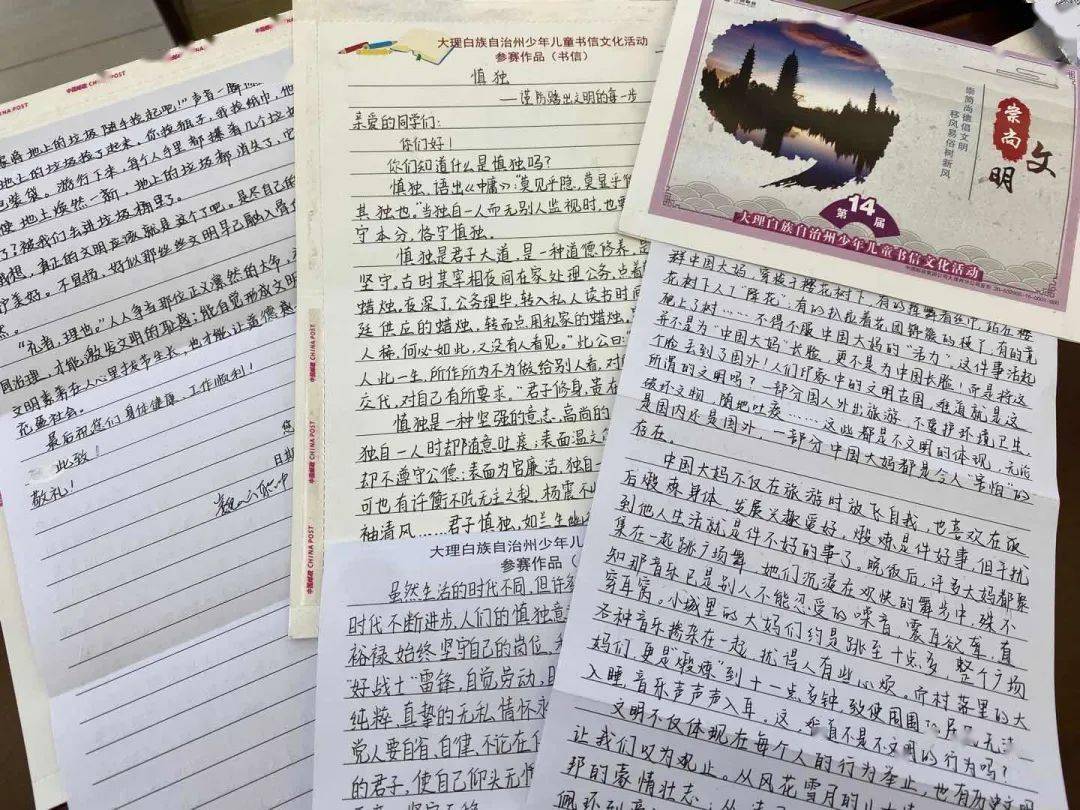 中国邮政 CHINA POST
地上的垃圾随手捡起吧！”声音一瞬
地上的垃圾捡了起来，你捡瓶子，我捡纸巾，他
包装袋。游行下来，每个人手里都攥着几个垃圾
使地上焕然一新，地上的垃圾都消失了，
了？被我们丢进垃圾桶里了。
我想，真正的文明应该就是这个了吧。是尽自己的
宁美好。不自扬，好似那丝丝文明早已融入骨
“礼者，理也。”人人争当那位正义凛然的大爷，
同治理，才能激发文明的耻感，能自觉形成文明
文明素养在人心里拔节生长，也才能让道德感
花盛社会。
最后祝您们身体健康，工作顺利！
此致！
敬礼！
日期
中国邮政 CHINA POST
大理白族自治州少年儿童书信文化活动
参赛作品（书信）
慎独
——谨书踏出文明的每一步
亲爱的同学们：
你们好！
你们知道什么是慎独吗？
慎独，语出《中庸》：“莫见乎隐，莫显乎
其独也。”当独自一人而无别人监视时，也要
守本分，恪守慎独。
慎独是君子大道，是一种道德修养，
坚守，古时某宰相夜间在家处理公务，点着
蜡烛。夜深了，公务理毕，转入私人读书时间
廷供应的蜡烛，转而点用私家的蜡烛。
人稀，何必如此，又没有人看见。”此公曰：
人此一生，所作所为不为做给别人看，对
交代，对自己有所要求。”“君子修身，贵在
慎独是一种坚强的意志，高尚的
独自一人时却随意吐痰；表面温文
却不遵守公德；表面为官廉洁，独自一
可也有许衡不吃无主之梨，杨震不
袖清风……君子慎独，如兰生幽
中国邮政 CHINA POST
大理白族自治州少年儿
参赛作品（
虽然生活的时代不同，但许
时代不断进步，人们的慎独意
裕禄，始终坚守自己的岗位。
“好战士”雷锋，自觉劳动，
纯粹，真挚的无私情怀永
党人要自省，自律，不论在
的君子，使自己仰头无愧
崇尚
文明
崇尚德信文明
移风易俗树新风
第14届
大理白族自治州少年儿童书信文化活动
群中国大妈，穿梭于樱花树下，有的挥舞着丝巾，站在樱
花树下人工“降花”，有的扒拉着花团锦簇的模样，有的竟
爬上了树……不得不服中国大妈的“活力”，这件事活起
并不是为“中国大妈”长脸，更不是为中国长脸！而是将这
个脸丢到了国外！人们印象中的文明古国，难道就是这
所谓的文明吗？一部分国人外出旅游，不爱护环境卫生，
破坏文物，随地吐痰……这些都是不文明的体现，无论
是国内还是国外，一部分中国大妈都是令人“害怕”的
存在。
中国大妈不仅在旅游时放飞自我，也喜欢在饭
后锻炼身体，发展兴趣爱好，锻炼是件好事，但干扰
到他人生活就是件不好的事了。晚饭后，许多大妈都聚
集在一起跳广场舞，她们沉浸在欢快的舞步中，殊不
知那音乐已是别人不能忍受的噪音，震耳欲聋，直
穿耳窝。小城里的大妈们约是跳至十点多，整个广场
各种音乐掺杂在一起，扰得人有些心烦。而村落里的大
妈们，更是“锻炼”到十一点多钟，致使周围居民无法
入睡，音乐声声声入耳，这难道不是不文明的行为吗？
文明不仅体现在每个人的行为举止，也有
让我们叹为观止。从风花雪月的
那的豪情壮志；